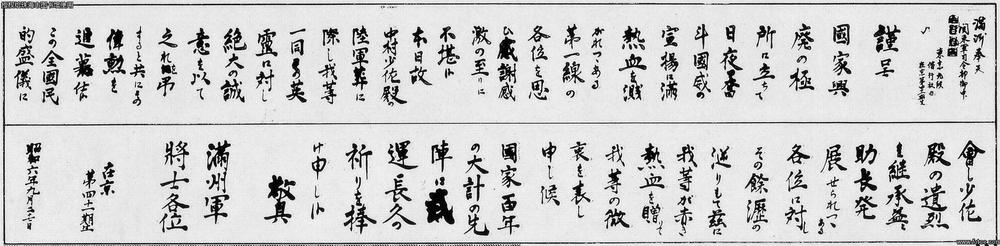 満洲奉天
関東軍司令部御中
東京市九段
偕行社内
在京第四十二期生
謹呈
國家興
廃の極
所に立ちて
日夜奮
斗國威の
宣揚に満
熱血を濺
がれつゝある
第一線の
各位を思
ひ感謝感
激の至りに
不堪候
本日故
中村少佐殿
陸軍葬に
際し我等
一同その英
靈に対し
絶大の誠
意を以て
之れを弔
すると共に
偉勲を
この全國民
的盛儀に
會し少佐
殿の遺烈
を継承益々
助長発
展せられつゝある
各位に対し
その餘瀝の
迸りもて茲に
我等が赤き
熱血を贈りて
我等の微
衷を表し
申し候
國家百年
の大計の先
陣に武
運長久の
祈りを捧
け申し候
敬具
満州軍
將士各位
在京
第四十二期生
昭和六年九月二十二日